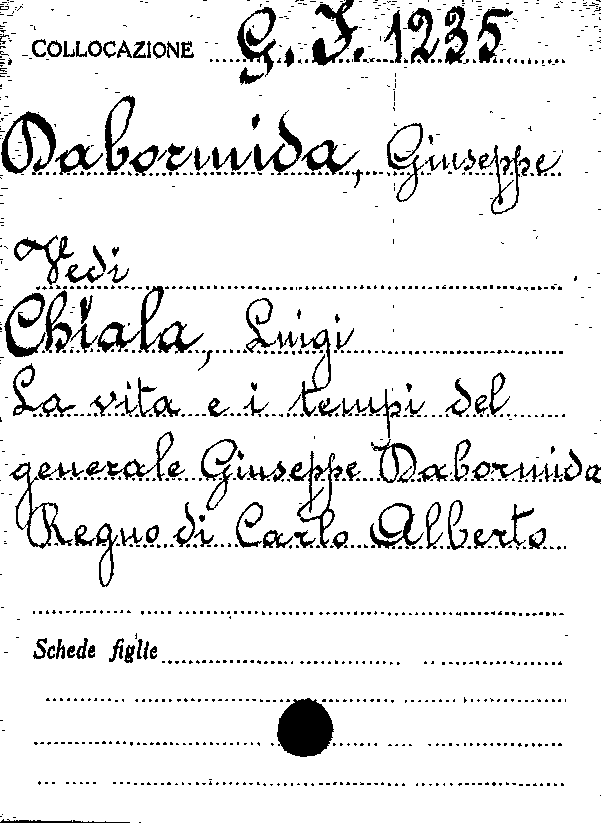 COLLOCAZIONE G. I. 1235
Dabormida, Giuseppe
Vedi
Chiala, Luigi
La vita e i tempi del
generale Giuseppe Dabormida
Regno di Carlo Alberto
Schede figlie